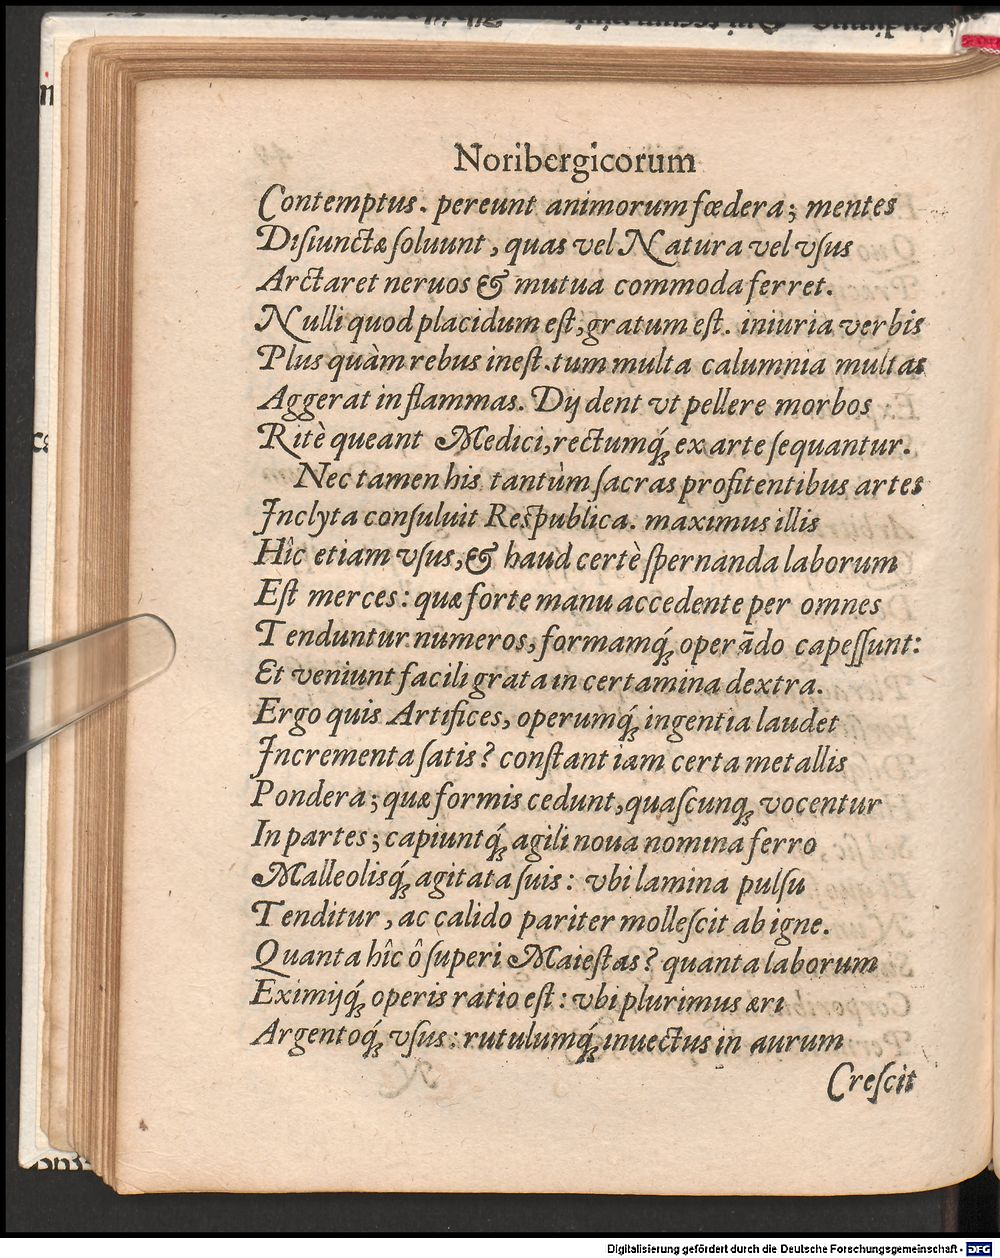 Noribergicorum
Contemptus. pereunt animorum fœdera; mentes
Diſiunctæ ſoluunt, quas vel Natura vel vſus
Arctaret neruos & mutua commoda ferret.
Nulli quod placidum eſt, gratum eſt. iniuria verbis
Plus quàm rebus ineſt. tum multa calumnia multas
Aggerat in flammas. Dij dent vt pellere morbos
Ritè queant Medici, rectumq́; ex arte ſequantur.
Nec tamen his tantùm ſacras profitentibus artes
Inclyta conſuluit Reſpublica. maximus illis
Hîc etiam vſus, & haud certè ſpernanda laborum
Eſt merces: quæ forte manu accedente per omnes
Tenduntur numeros, formamq́; operãdo capeſſunt:
Et veniunt facili grata in certamina dextra.
Ergo quis Artifices, operumq́; ingentia laudet
Incrementa ſatis? conſtant iam certa metallis
Pondera; quæ formis cedunt, quaſcunq; vocentur
In partes; capiuntq́; agili noua nomina ferro
Malleolisq́; agitata ſuis: vbi lamina pulſu
Tenditur, ac calido pariter molleſcit ab igne.
Quanta hîc ô ſuperi Maieſtas? quanta laborum
Eximijq́; operis ratio eſt: vbi plurimus æri
Argentoq́; vſus: rutulumq́; inuectus in aurum
Creſcit
Digitalisierung gefördert durch die Deutsche Forschungsgemeinschaft - DFG